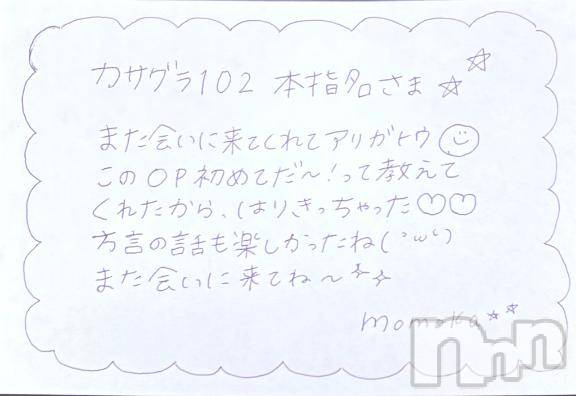 カサグラ102 本指名さま☆☆
また会いに来てくれてアリガトウ
このOP初めてだ〜!って教えて
くれたから、はりきっちゃった♡♡
方言の話も楽しかったね(´ω`)
また会いに来てね〜☆☆
momoka☆☆